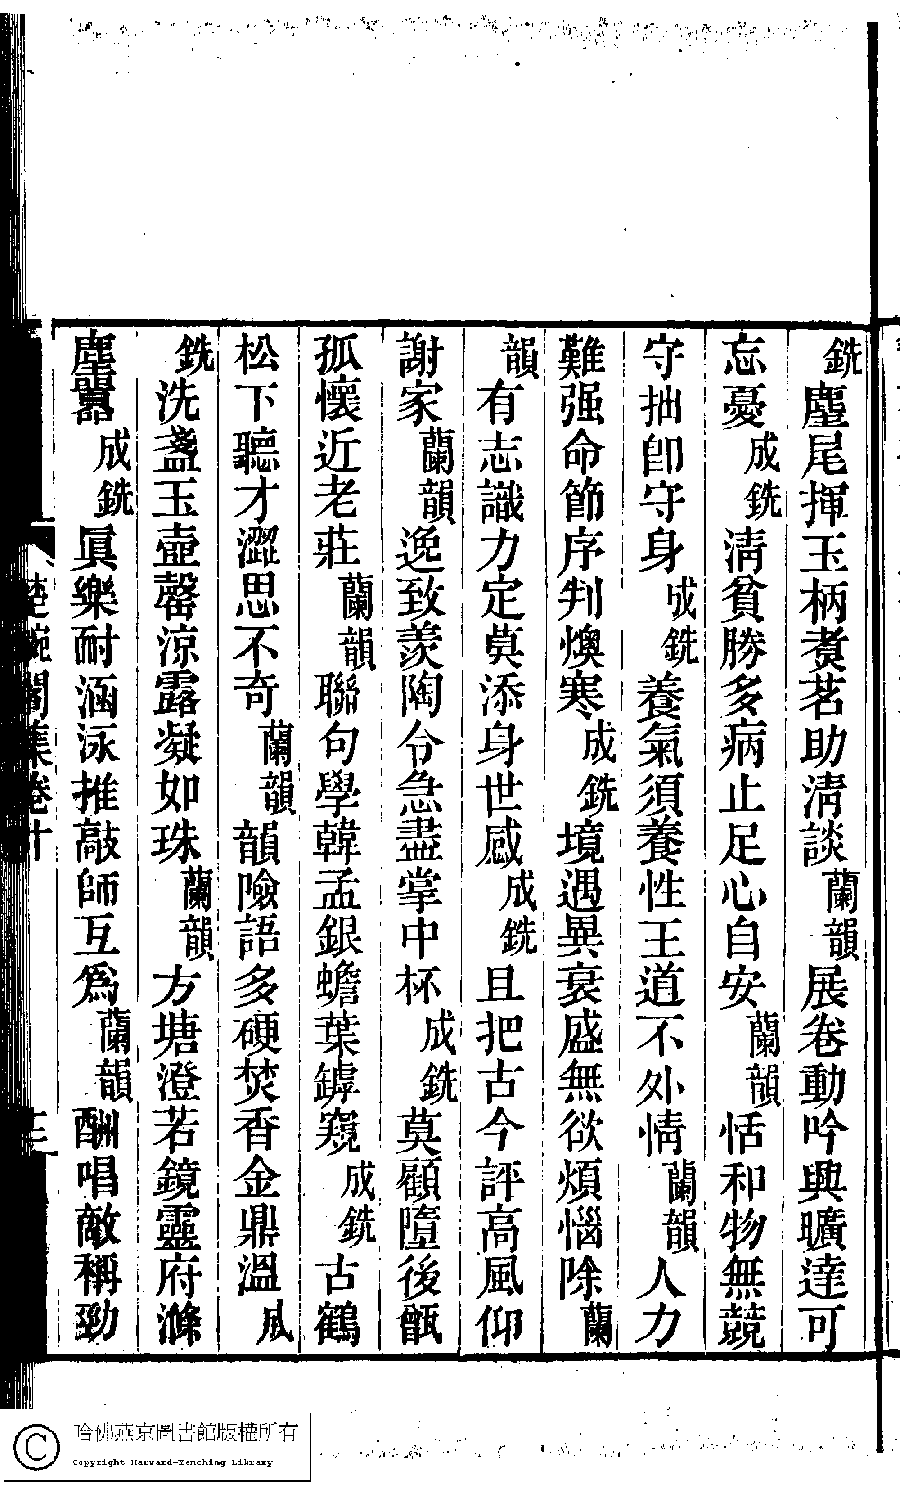 銑麈尾揮玉柄煑茗助清談蘭韻展卷動吟興曠達可
忘憂成銑清貧勝多病止足心自安蘭韻恬和物無競
守拙卽守身成銑養氣須養性王道不外情蘭韻人力
難强命節序判燠寒成銑境遇異衰盛無欲煩惱除蘭
韻有志識力定莫添身世感成銑且把古今評高風仰
謝家蘭韻逸致羨陶令急盡掌中杯成銑莫顧墮後甑
孤懷近老莊蘭韻聯句學韓孟銀蟾葉罅窺成銑古鶴
松下聽才澀思不奇蘭韻韻險語多硬焚香金鼎溫成
銑洗盞玉壺罄涼露凝如珠蘭韻方塘澄若鏡靈府滌
塵囂成銑眞樂耐涵泳推敲師互爲蘭韻酬唱敵稱勁
楚畹閣集卷十
三
哈佛燕京圖書館版權所有
Copyright Harvard-Yenching Library